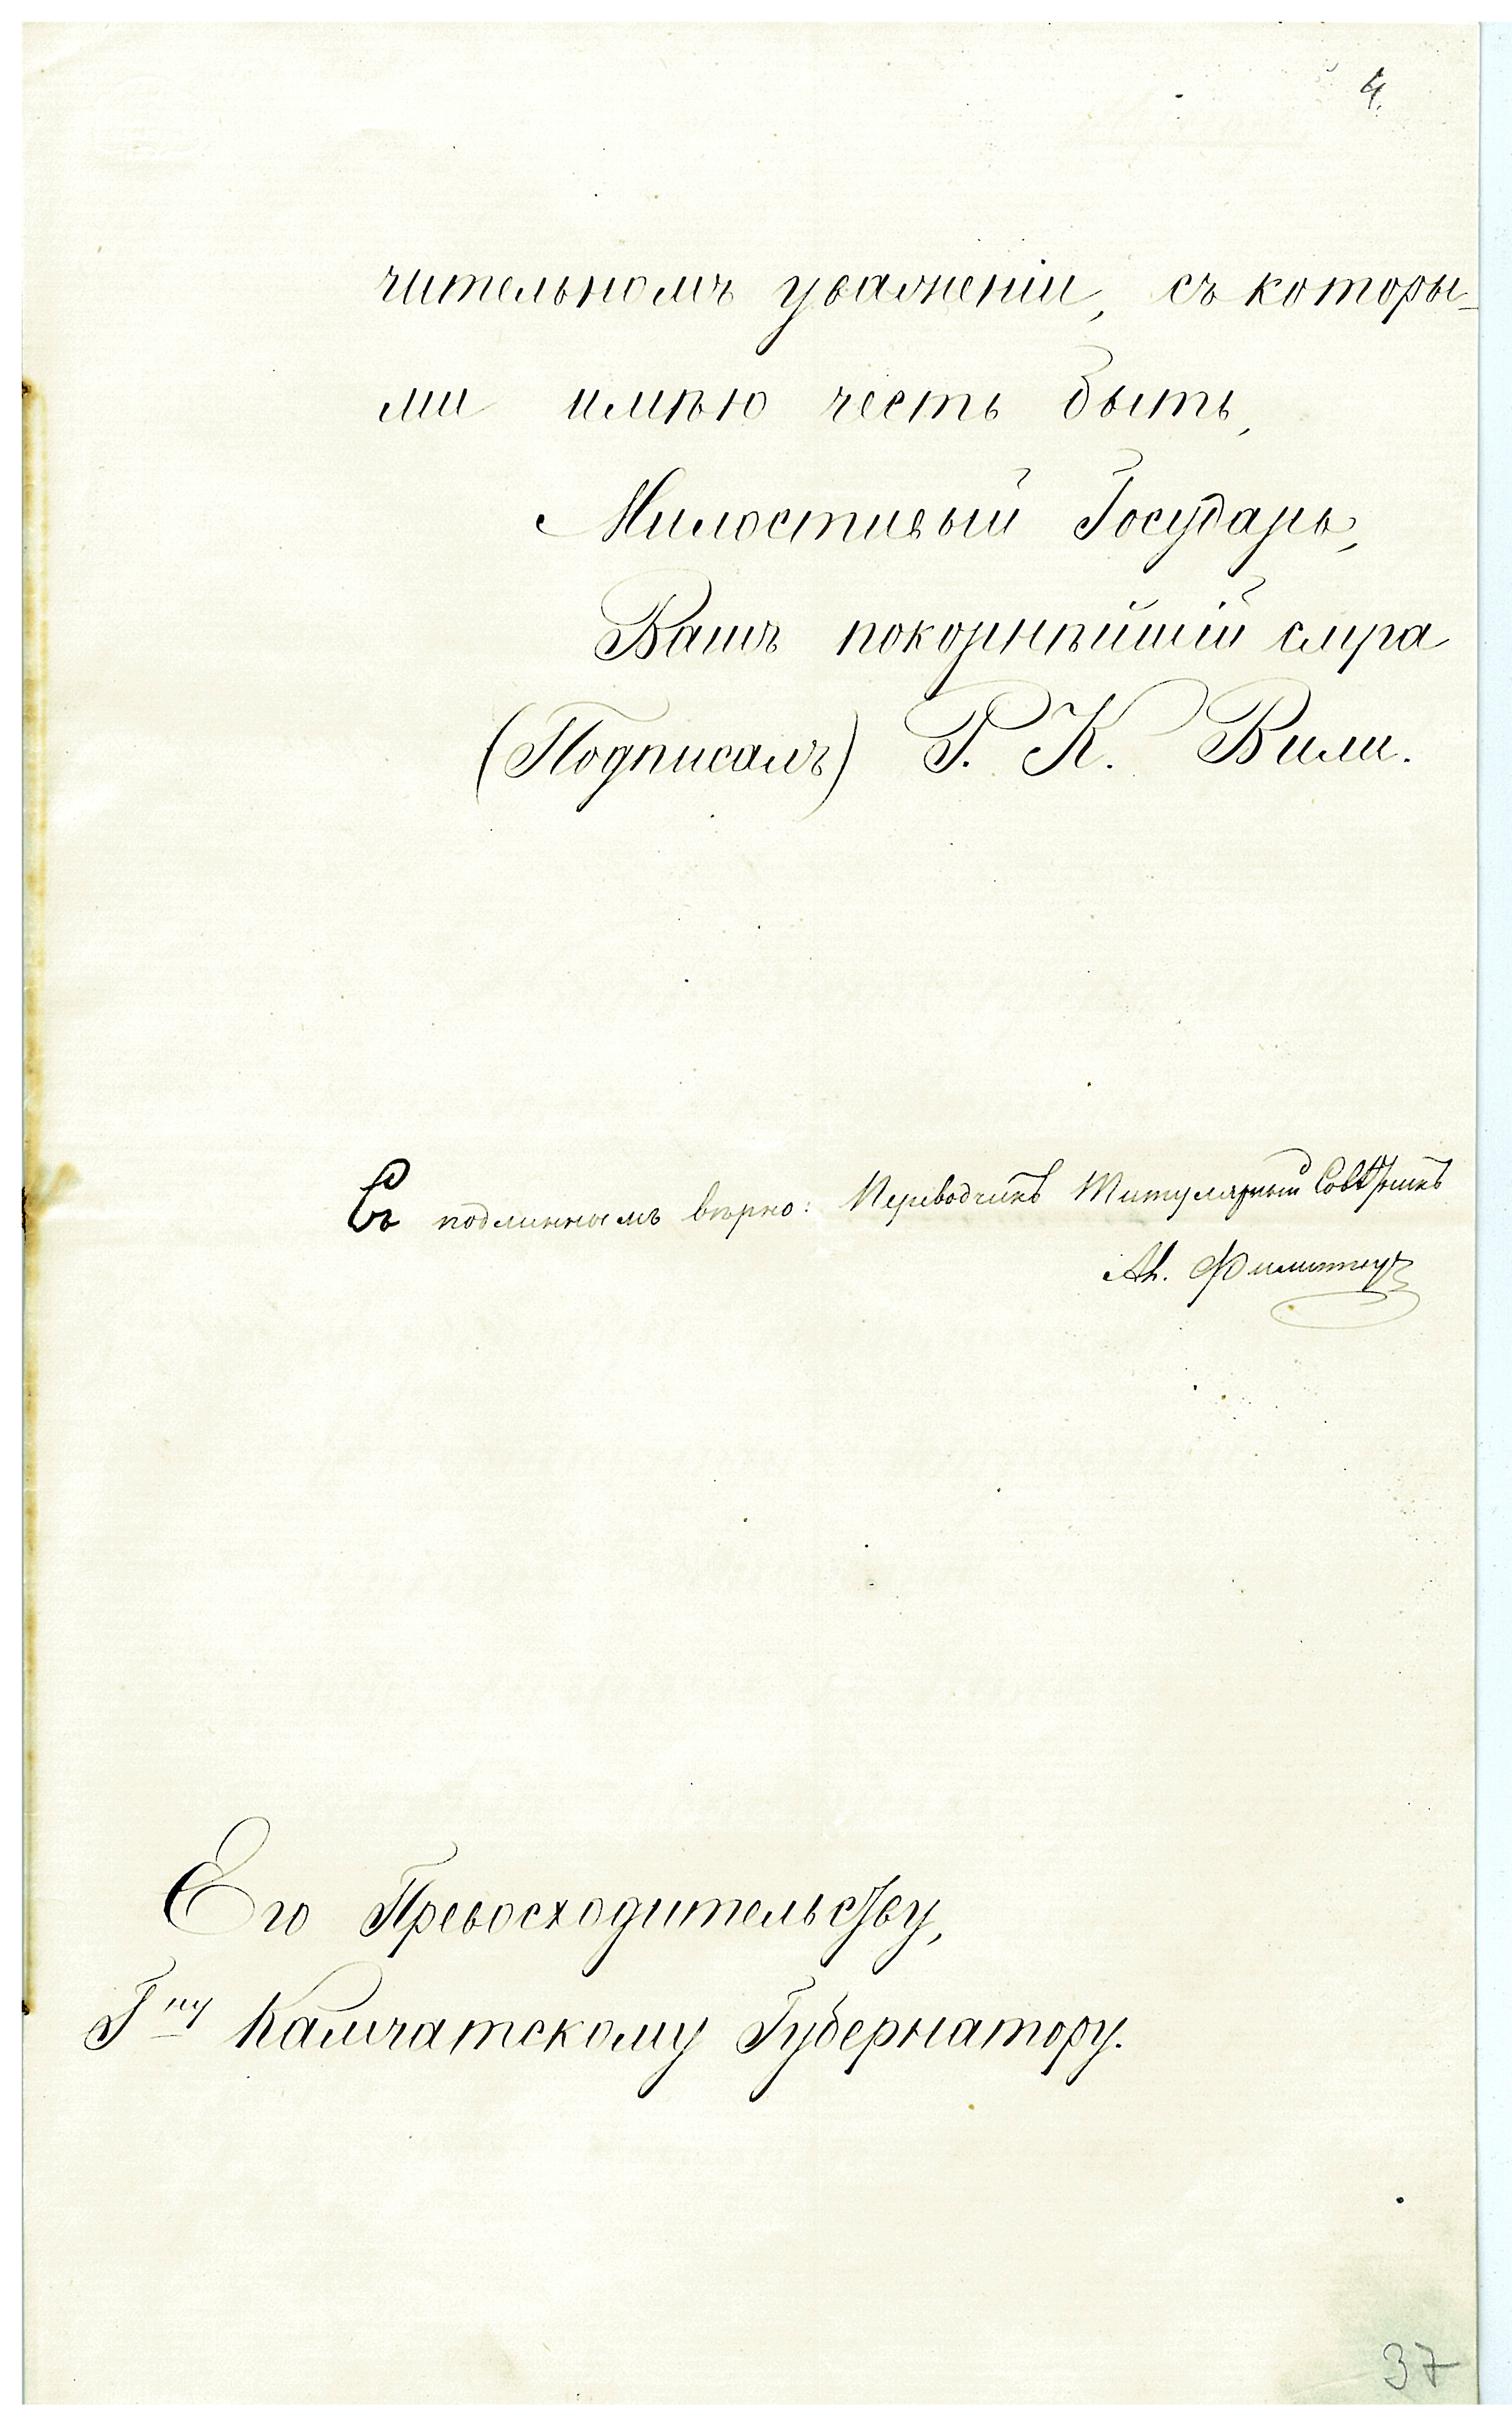 4.
чительномъ уваженіи, съ которы-
ми имѣю честь быть,
Милостивый Государь,
Вашъ покорнѣйшій слуга
(Подписалъ) Р. К. Вили.
Съ подлиннымъ вѣрно: Переводчикъ Титулярный Совѣтникъ
Ан.
Его Превосходительству,
Гну Камчатскому Губернатору.
37